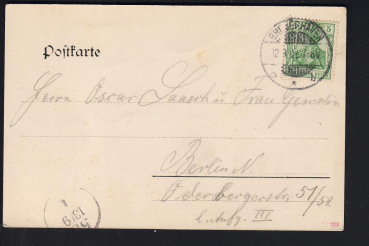 Postkarte
5
Herrn Oscar Laasch u Frau Gemahlin
Berlin N.
Oderbergerstr 51/52
III